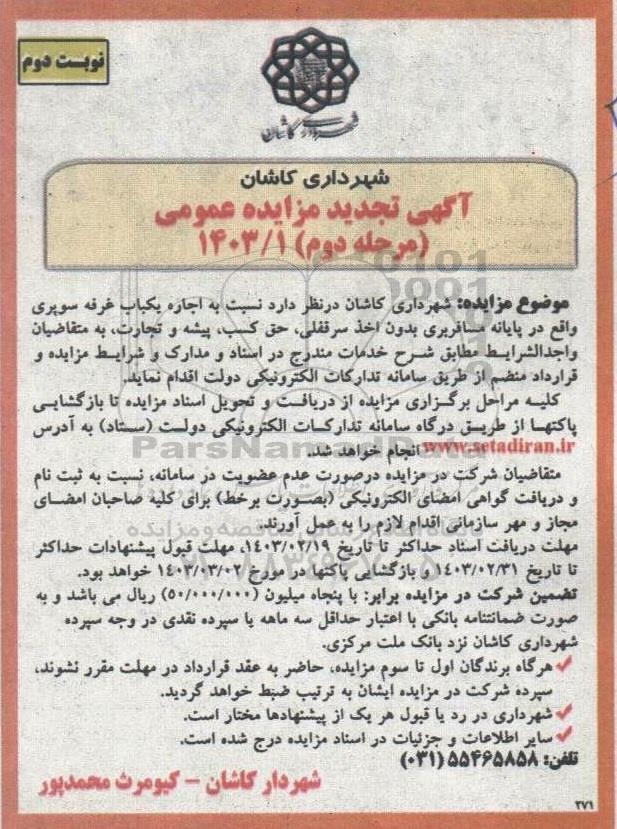 نوبت دوم
شهرداری کاشان
شهرداری کاشان
آگهی تجدید مزایده عمومی
(مرحله دوم) ۱۴۰۳/۱
موضوع مزایده: شهرداری کاشان درنظر دارد نسبت به اجاره یکباب غرفه سوپری
واقع در پایانه مسافربری بدون اخذ سرقفلی، حق کسب، پیشه و تجارت، به متقاضیان
واجدالشرایط مطابق شرح خدمات مندرج در اسناد و مدارک و شرایط مزایده و
قرارداد منضم از طریق سامانه تدارکات الکترونیکی دولت اقدام نماید.
کلیه مراحل برگزاری مزایده از دریافت و تحویل اسناد مزایده تا بازگشایی
پاکتها از طریق درگاه سامانه تدارکات الکترونیکی دولت (ستاد) به آدرس
www.setadiran.ir انجام خواهد شد.
متقاضیان شرکت در مزایده درصورت عدم عضویت در سامانه، نسبت به ثبت نام
و دریافت گواهی امضای الکترونیکی (بصورت برخط) برای کلیه صاحبان امضای
مجاز و مهر سازمانی اقدام لازم را به عمل آورند.
مهلت دریافت اسناد حداکثر تا تاریخ ۱۴۰۳/۰۲/۱۹، مهلت قبول پیشنهادات حداکثر
تا تاریخ ۱۴۰۳/۰۲/۳۱ و بازگشایی پاکتها در مورخ ۱۴۰۳/۰۳/۰۲ خواهد بود.
تضمین شرکت در مزایده برابر: با پنجاه میلیون (۵۰/۰۰۰/۰۰۰) ریال می باشد و به
صورت ضمانتنامه بانکی با اعتبار حداقل سه ماهه یا سپرده نقدی در وجه سپرده
شهرداری کاشان نزد بانک ملت مرکزی.
هرگاه برندگان اول تا سوم مزایده، حاضر به عقد قرارداد در مهلت مقرر نشوند،
سپرده شرکت در مزایده ایشان به ترتیب ضبط خواهد گردید.
شهرداری در رد یا قبول هر یک از پیشنهادها مختار است.
سایر اطلاعات و جزئیات در اسناد مزایده درج شده است.
تلفن: ۵۵۴۶۵۸۵۸ (۰۳۱)
شهردار کاشان – کیومرث محمدپور
۲۷۱
ParsNamadData